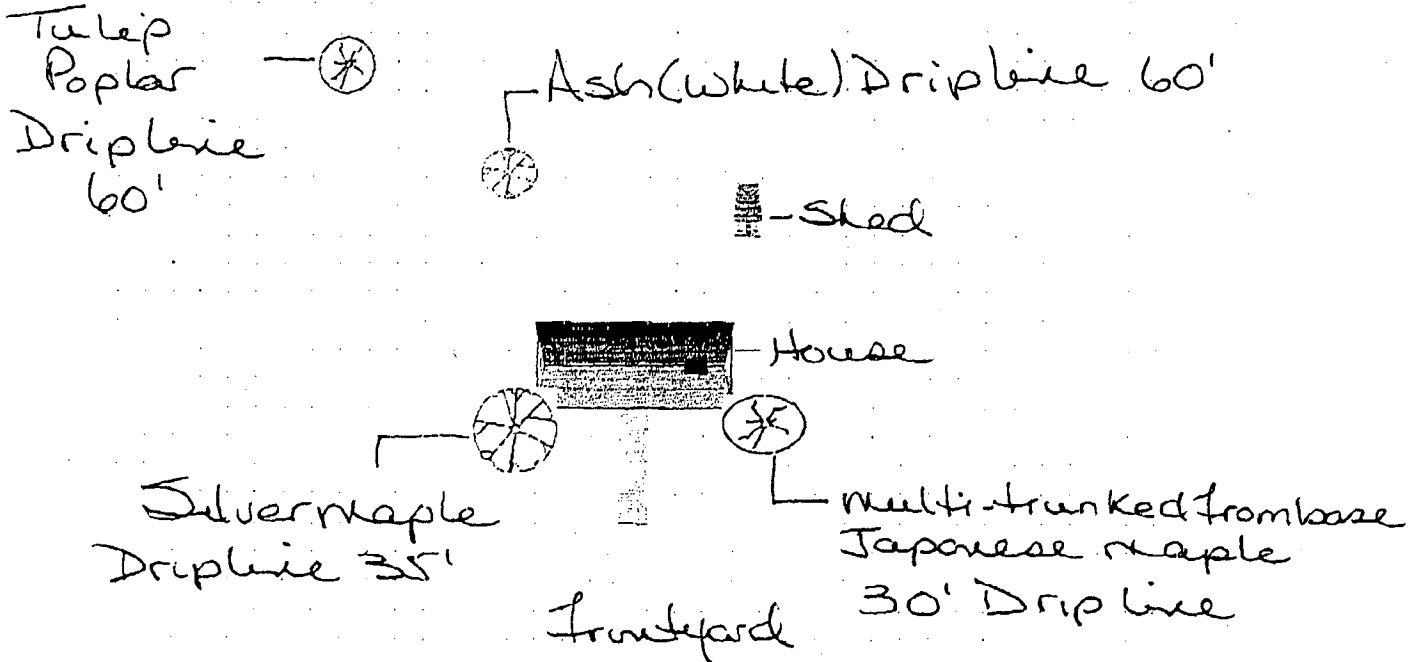 Tulip
Poplar
Dripline
60'
Ash (White) Dripline 60'
-Shed
House
Silver maple
Dripline 35'
multi-trunked from base
Japanese maple
30' Drip line
Frontyard